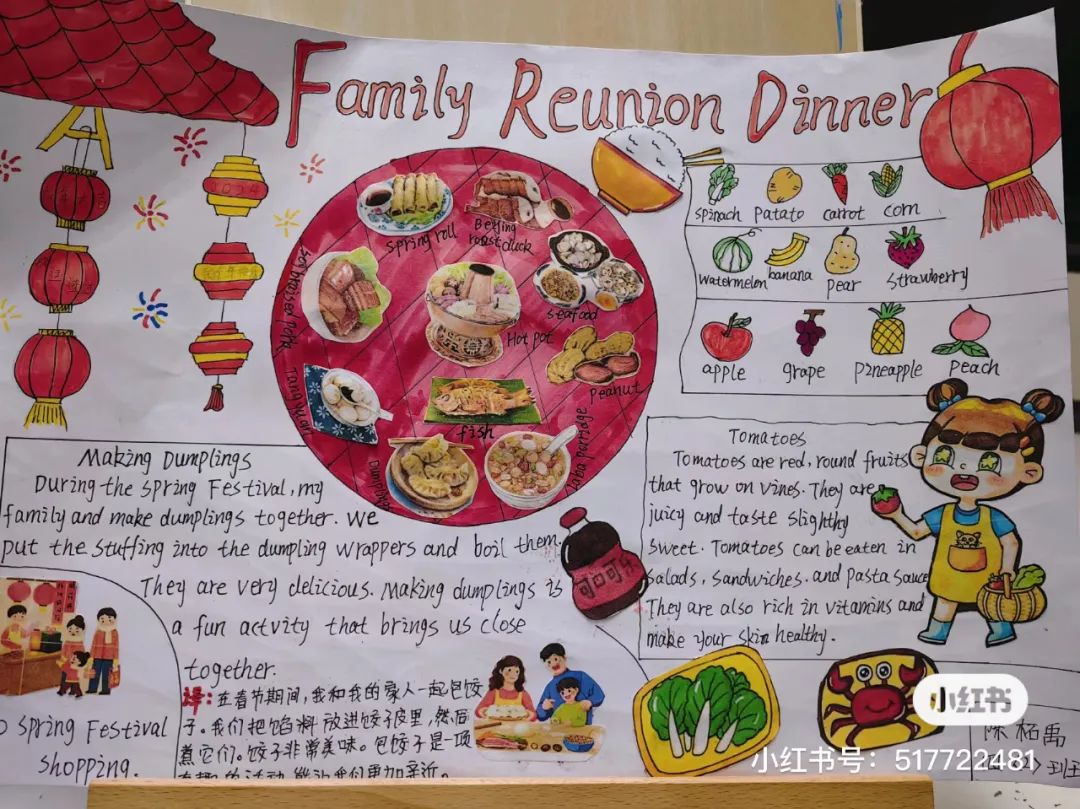 Family Reunion Dinner
2024
spinach patato carrot corn
watermelon banana pear strawberry
apple grape pineapple peach
Spring roll
Beijing
roast duck
seafood
Hot pot
peanut
fish
Tang yuan
Making Dumplings
During the Spring Festival, my
family and make dumplings together. We
put the stuffing into the dumpling wrappers and boil them.
They are very delicious. Making dumplings is
a fun actvity that brings us close
together.
译: 在春节期间,我和我的家人一起包饺
子。我们把馅料放进饺子皮里,然后
煮它们。饺子非常美味。包饺子是一项
Tomatoes
Tomatoes are red, round fruits
that grow on vines. They are
juicy and taste slighthy
sweet. Tomatoes can be eaten in
salads, sandwiches. and pasta sauce
They are also rich in vitamins and
make your skin healthy.
可口可乐
Spring Festival
shopping.
小红书
小红书号: 517722481